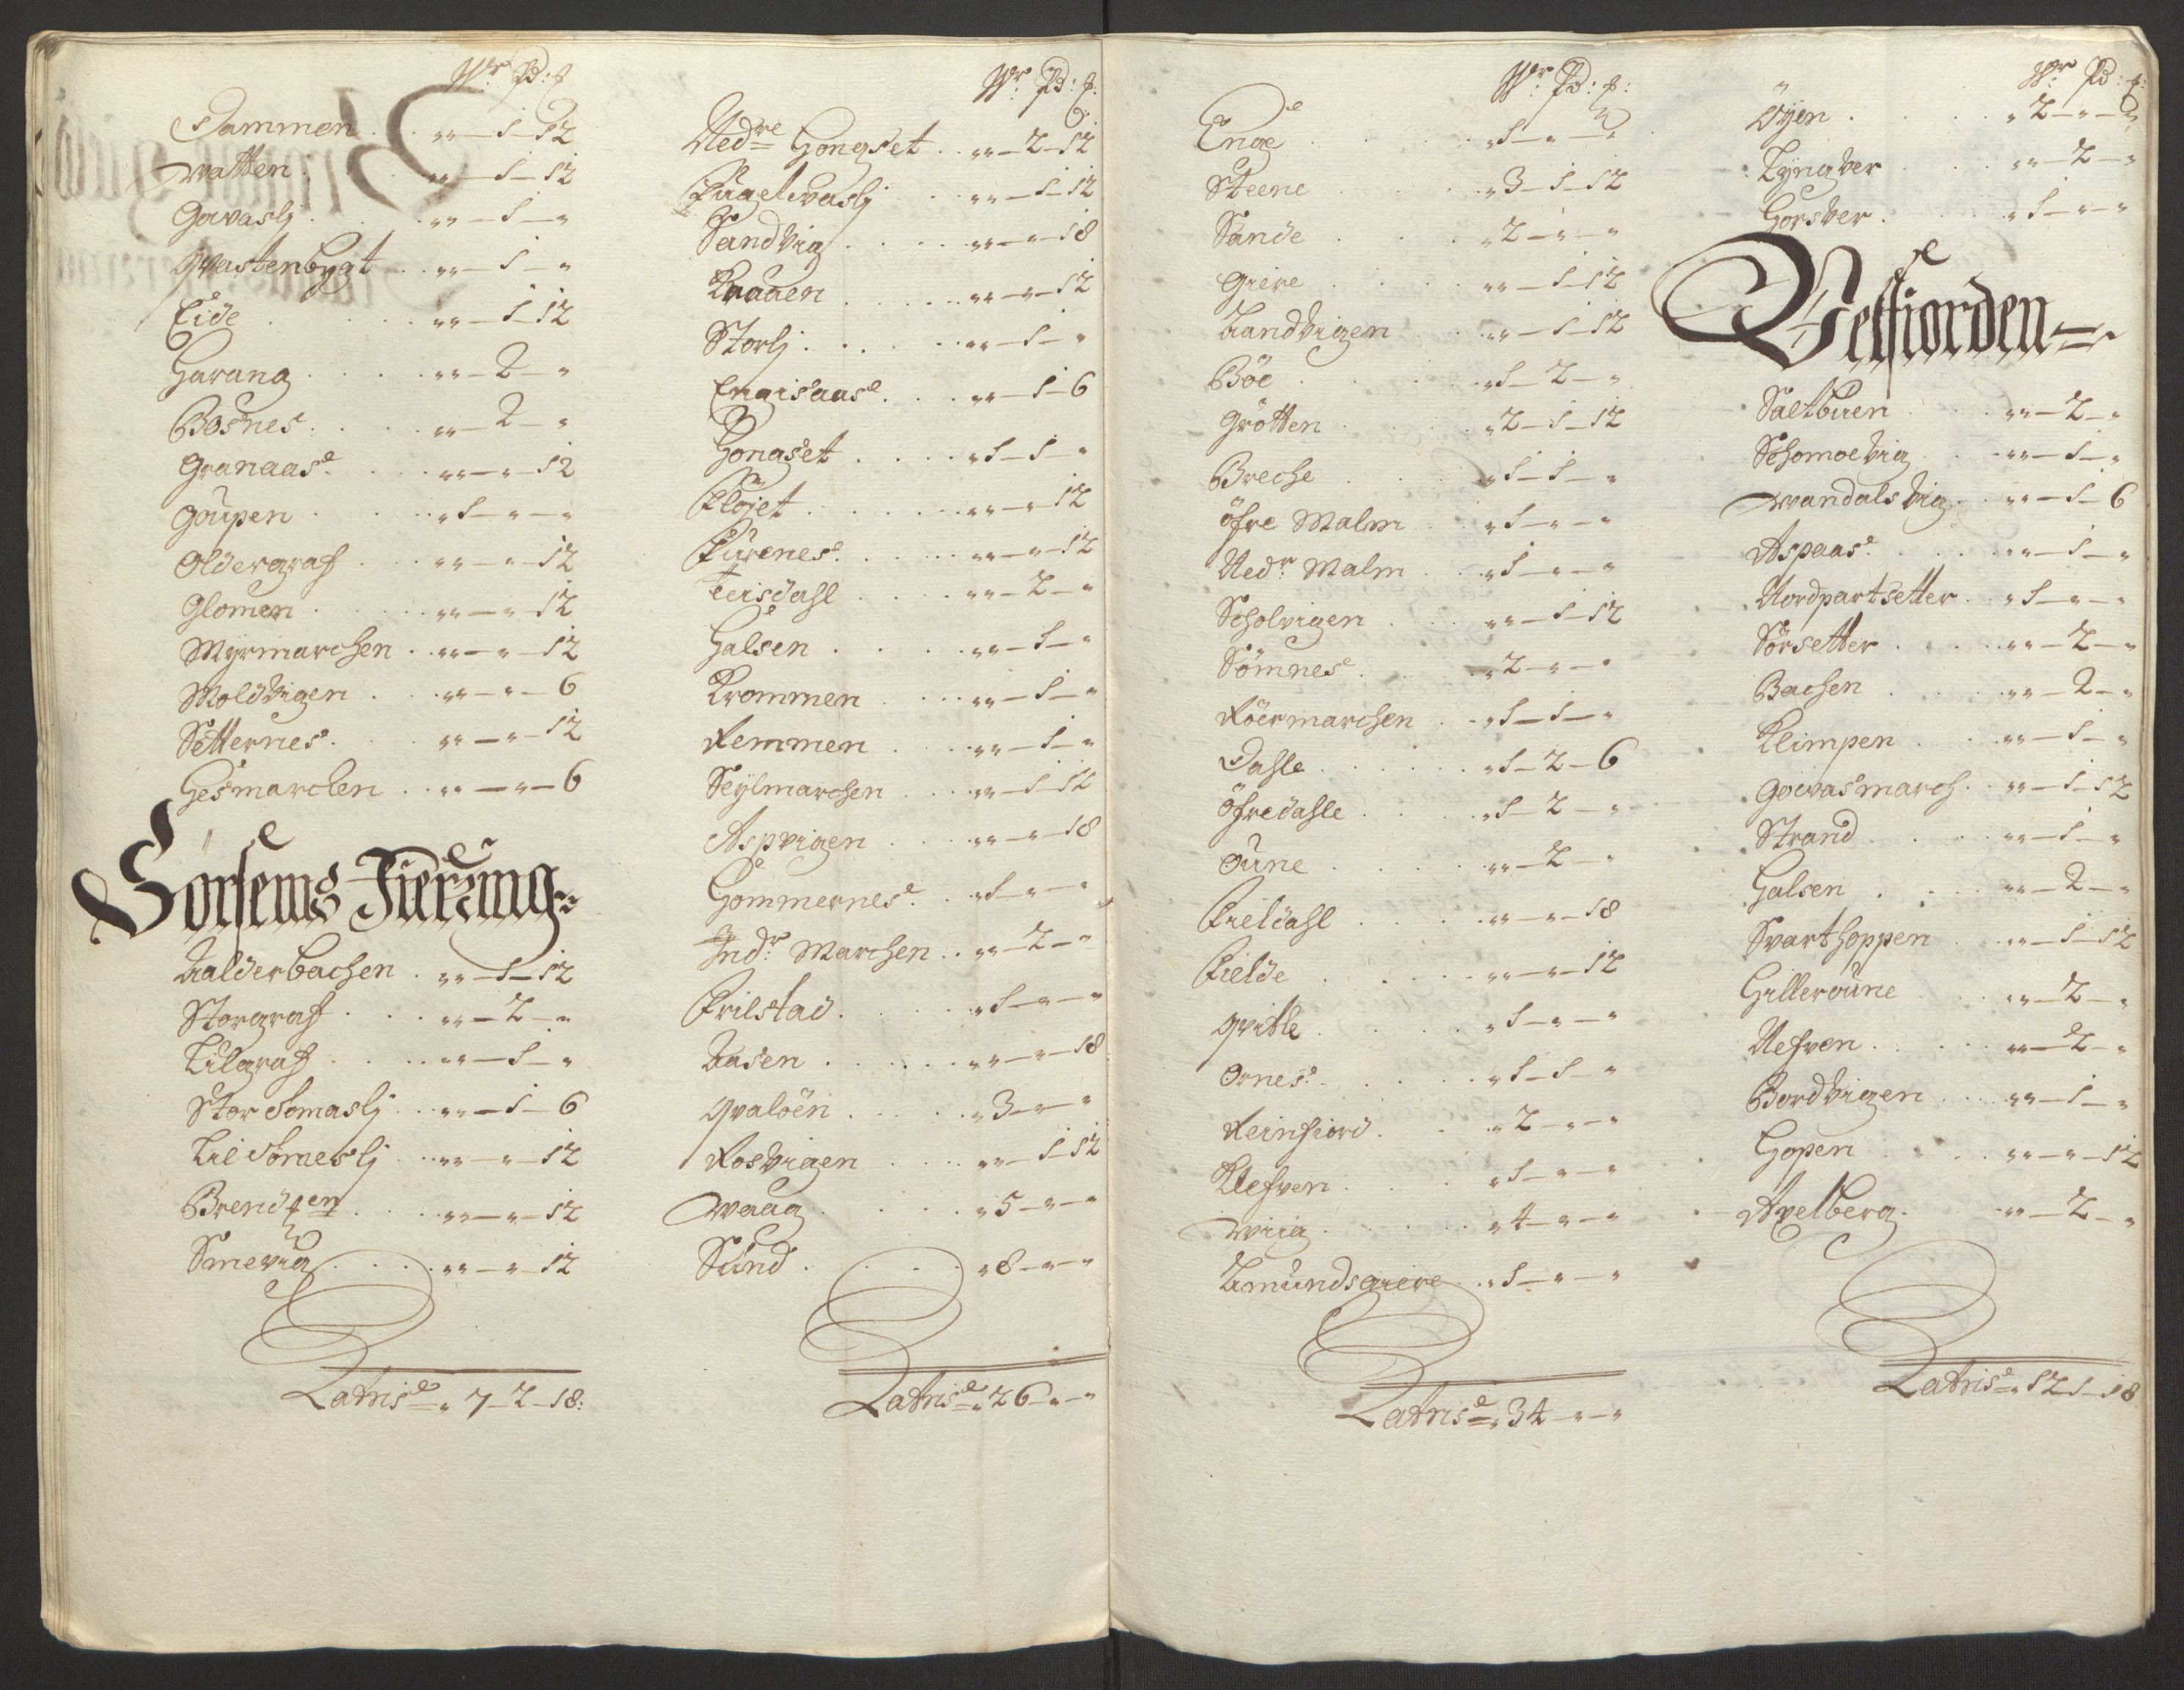 Wr: Pd: £
Dammen . . „„ — 1 — 12
Watten . „„ — 1 — 12
Govaslj . . „„ — 1 — „
Qvastenbygt . „„ — 1 — „
Eide . . „„ — 1 — 12
Harang . . . „„ — 2 — „
Bosnes . . . „„ — 2 — „
Granaase . . „„ — „ — 12
Goupen . . . „ 1 — „ — „
Oldergraf . . „„ — „ — 12
Glomen . . . „„ — „ — 12
Myrmarchen . „„ — „ — 12
Moldvigen . . „„ — „ — 6
Setternes . . „„ — „ — 12
Hesmarchen . . „„ — „ — 6
Sørsems Fierding
Aalderbachen . „„ — 1 — 12
Storgraf . . . „„ — 2 — „
Lilgraf . . . „„ — 1 — „
Stor Somaslj . . „„ — 1 — 6
Lil Someslj . . „„ — „ — 12
Brendten . . „„ — „ — 12
Smevig . . . „„ — „ — 12
Latrise „ 7 — 2 — 18:
Wr: Pd: £:
Nedre Hongset . . „„ — 2 — 12
Fugelvaslj . . „„ — 1 — 12
Sandvig . . . „„ — „ — 18
Kraaen . . . „„ — „ — 12
Storlj . . . . „„ — 1 — „
Engisaase . . . „„ — 1 — 6
Hongset . . . . „ 1 — 1 — „
Fløjet . . . . „„ — „ — 12
Furenese . . . „„ — „ — 12
Teisdahl . . . „„ — 2 — „
Halsen . . . . „„ — 1 — „
Krommen . . . „„ — 1 — „
Remmen . . . „„ — 1 — „
Seÿlmarchen . . „„ — 1 — 12
Aspvigen . . . „„ — „ — 18
Hommernese . . „ 1 — „ — „
Indr: Marchen . . „„ — 2 — „
Frilstad . . . . „ 1 — „ — „
Aasen . . . . „„ — „ — 18
Qvaløen . . . . „ 3 — „ — „
Rosvigen . . . „„ — 1 — 12
Waag . . . . „ 5 — „ — „
Sund . . . . „ 8 — „ — „
Latrise „ 26 — „ — „
Wr: Pd: £:
Enge . . . . „ 1 — „ — „
Steene . . . . „ 3 — 1 — 12
Sande . . . . „ 2 — „ — „
Giere . . . . „„ — 1 — 12
Aandvigen . . . „„ — 1 — 12
Bøe . . . . „ 1 — 2 — „
Grøtten . . . . „ 2 — 1 — 12
Breche . . . . „ 1 — 1 — „
Øfre Malm . . „ 1 — „ — „
Nedr: Malm . . „ 1 — „ — „
Scholvigen . . „„ — 1 — 12
Sømnese . . . „ 2 — „ — „
Røermarchen . . „ 1 — 1 — „
Dahle . . . . „ 1 — 2 — 6
Øfredahle . . . „ 1 — 2 — „
Oune . . . . „„ — 2 — „
Fieldahl . . . „„ — „ — 18
Fielde . . . . „„ — „ — 12
Qvitle . . . . „ 1 — „ — „
Ornese . . . . „ 1 — 1 — „
Reinfiord . . . „ 2 — „ — „
Klefven . . . . „ 1 — „ — „
Wiig . . . . „ 4 — „ — „
Amundsgiere . . „ 1 — „ — „
Latrise „ 34 — „ — „
Wr: Pd: £:
Øÿen . . . . „ 2 — „ — „
Lÿngver . . . „„ — 2 — „
Horsver . . . „ 1 — „ — „
Velfiorden
Saltbuen . . . „„ — 2 — „
Schomoevig . . „„ — 1 — „
Wandalsvig . . „„ — 1 — 6
Aspaase . . . . „„ — 1 — „
Nordpartsetter . . „ 1 — „ — „
Sørsetter . . . „„ — 2 — „
Bachen . . . . „„ — 2 — „
Klimpen . . . „„ — 1 — „
Govasmarch . . „„ — 1 — 12
Strand . . . . „„ — 1 — „
Halsen . . . . „„ — 2 — „
Svarthoppen . . „„ — 1 — 12
Hilleroune . . . „„ — 2 — „
Nefven . . . . „„ — 2 — „
Bordvigen . . . „„ — 1 — „
Hopen . . . . „„ — „ — 12
Avelberg . . . „„ — 2 — „
Latrise „ 12 — 1 — 18